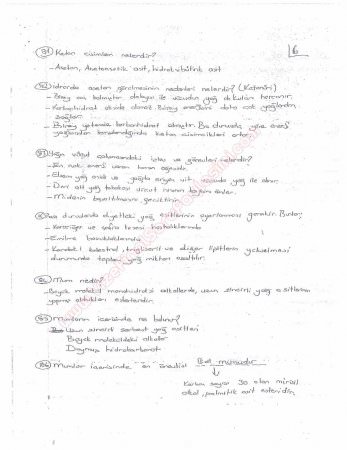 16
81) Keton cisimleri nelerdir?
- Aseton, Asetoasetik asit, hidroksibütirik asit
82) İdrarda aseton görülmesinin nedenleri nelerdir? (Ketonüri)
- Birey aç kalmıştır dolayısı ile vücudda yağ
- Karbonhidrat
sağlar.
- Birey yetersiz karbonhidrat almıştır. Bu durumda yine enerji
yağlardan karşılandığında keton cisimcikleri artar.
83) Yağın vücud çalışmasındaki işlev ve görevleri nelerdir?
- En çok enerji veren besin öğesidir.
- Elzem yağ asidi ve yağda eriyen vit. vücuda yağ ile alınır.
- Deri altı yağ tabakası vücut ısısının kaybını önler.
- Midenin boşaltılmasını geciktirir.
Bazı durumlarda diyetteki yağ eşitlerinin ayarlanması gerekir. Bunlar;
- Karaciğer ve safra kesesi hastalıklarında
- Emilme bozukluklarında
- Kandaki kolesterol, trigliserit ve diğer lipitlerin yükselmesi
durumunda toplam yağ miktarı azaltılır.
84) Mum nedir?
- Büyük moleküllü monohidroksi alkollerle, uzun zincirli yağ asitlerinin
yapmış oldukları esterlerdir.
85) Mumların içerisinde ne bulunur?
Uzun zincirli serbest yağ asitleri
Büyük moleküldeki alkoller
Doymuş hidrokarbonlar
86) Mumlar içerisinde en önemlisi Bal mumudur
↓
Karbon sayısı 30 olan mirisil
alkol, palmitik asit esteridir.